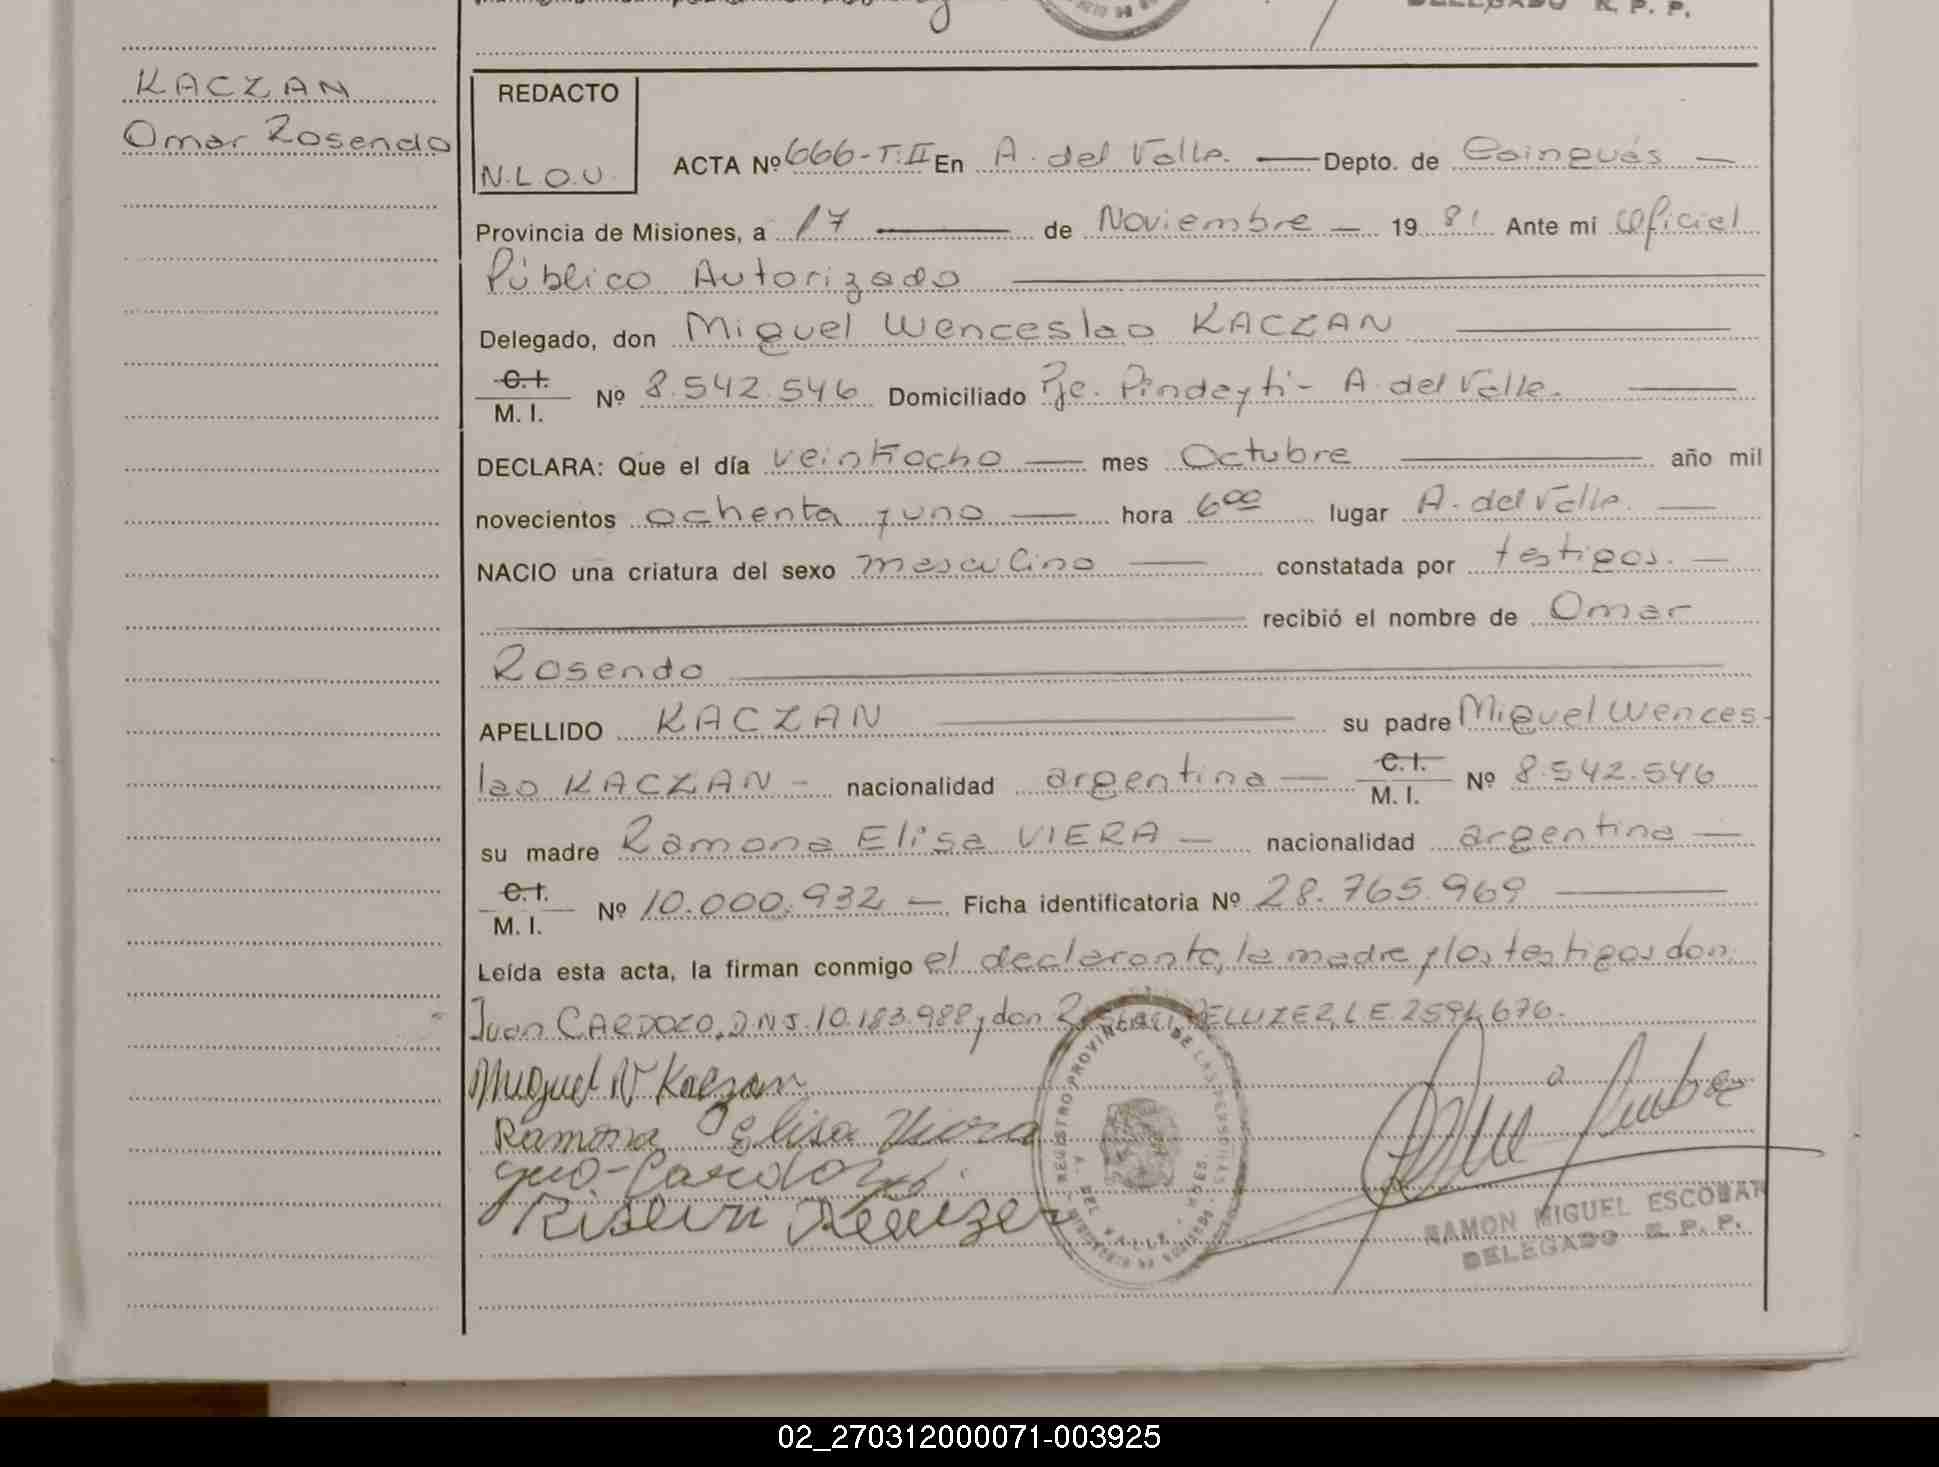 DELEGADO R. P. P.
KACZAN
Omar Rosendo
REDACTO
N.L.O.U.
ACTA Nº 666-T.II En A. del Valle. — Depto. de Cainguás —
Provincia de Misiones, a 17 — de Noviembre — 19 81 Ante mi Oficial
Público Autorizado
Delegado, don Miguel Wenceslao KACZAN
C.I.
M. I. Nº 8.542.546 Domiciliado Pje. Pindayti - A. del Valle.
DECLARA: Que el día veintiocho — mes Octubre — año mil
novecientos ochenta y uno — hora 6⁰⁰ lugar A. del Valle. —
NACIO una criatura del sexo masculino — constatada por testigos. —
recibió el nombre de Omar
Rosendo
APELLIDO KACZAN — su padre Miguel Wences-
lao KACZAN - nacionalidad argentina — C.I.
M. I. Nº 8.542.546
su madre Ramona Elisa VIERA — nacionalidad argentina —
C.I.
M. I. Nº 10.000.932 — Ficha identificatoria Nº 28.765.969
Leída esta acta, la firman conmigo el declarante, la madre y los testigos don
Juan CARDOZO, D.N.I. 10.183.988 y don PELLIZER, L.E. 676.-
Miguel W Kaczan
Ramona Elisa Viera
Cardozo
REGISTRO PROVINCIAL DE LAS PERSONAS
A. DEL VALLE
RAMON MIGUEL ESCOBAR
DELEGADO R. P. P.
02_270312000071-003925